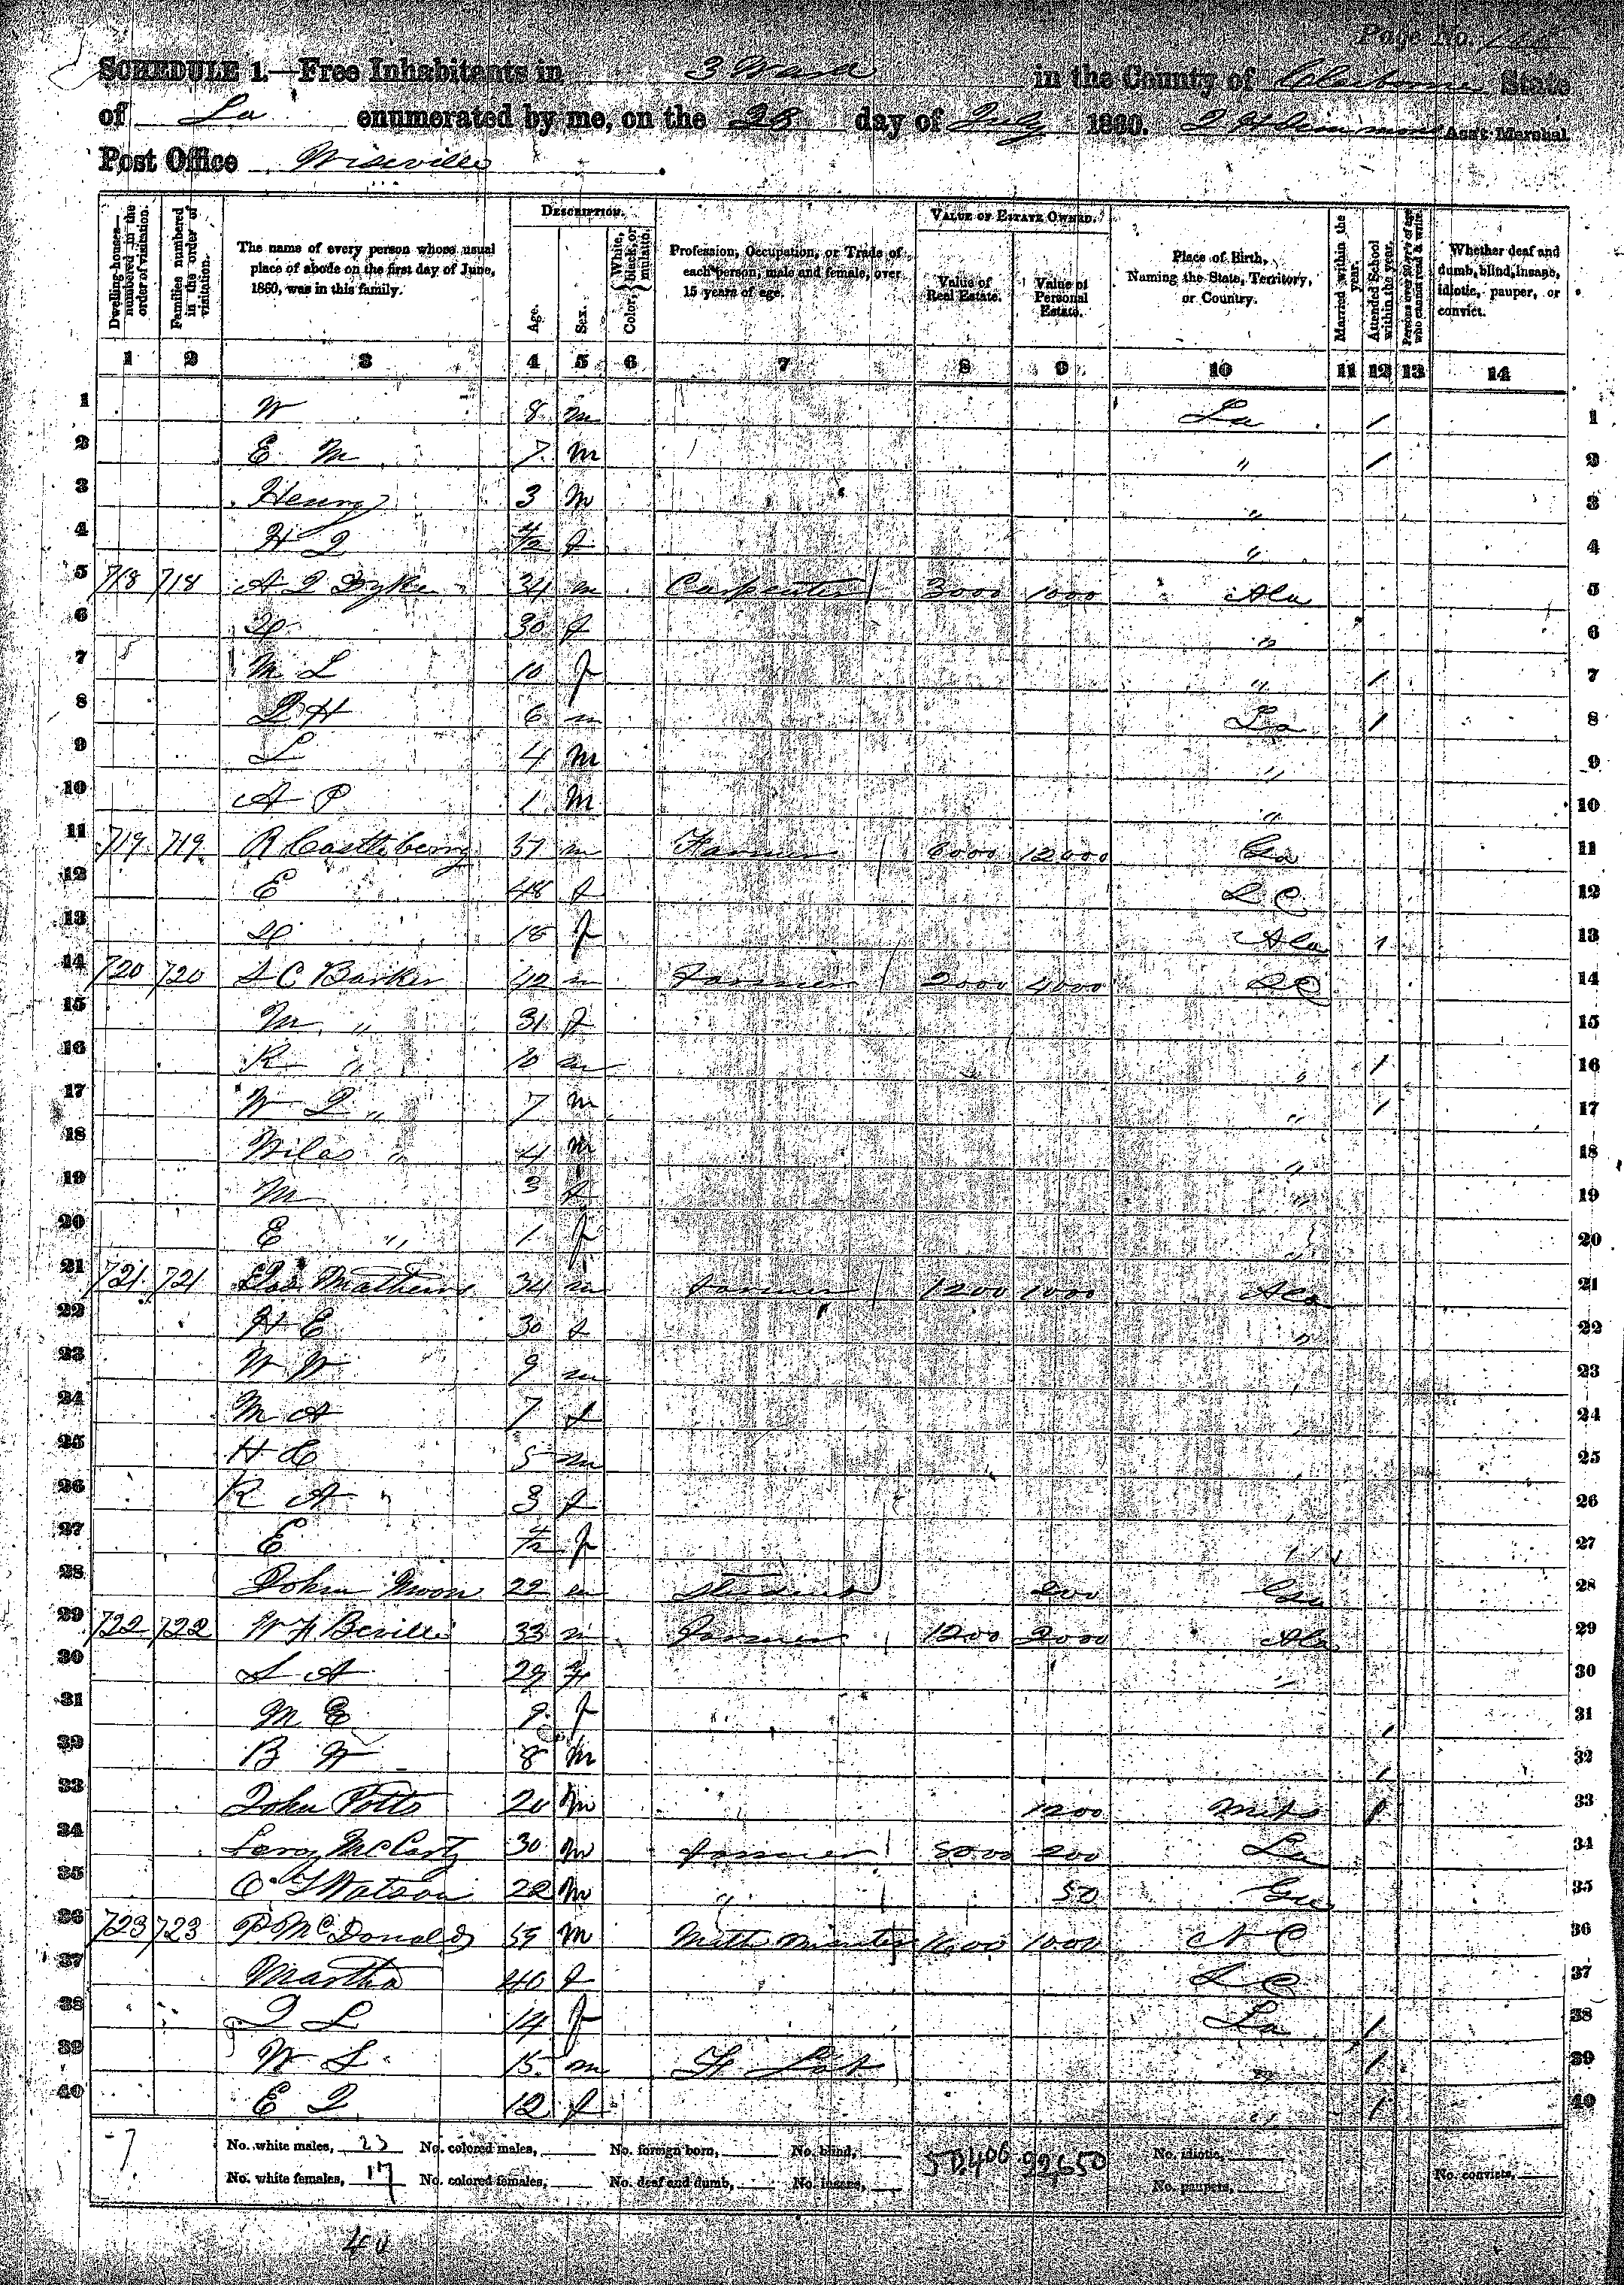 Page No.
SCHEDULE 1.—Free Inhabitants in 3 Ward in the County of Claiborne State
of La enumerated by me, on the 28 day of July 1860. Ass't Marshal.
Post Office Wiseville.
Dwelling-houses—numbered in the order of visitation.
Families numbered in the order of visitation.
The name of every person whose usual place of abode on the first day of June, 1860, was in this family.
DESCRIPTION.
Age.
Sex.
Color, { White, black, or mulatto.
Profession, Occupation, or Trade of each person, male and female, over 15 years of age.
VALUE OF ESTATE OWNED.
Value of Real Estate.
Value of Personal Estate.
Place of Birth, Naming the State, Territory, or Country.
Married within the year.
Attended School within the year.
Persons over 20 y'rs of age who cannot read & write.
Whether deaf and dumb, blind, insane, idiotic, pauper, or convict.
1 2 3 4 5 6 7 8 9 10 11 12 13 14
1 W 8 m La / 1
2 E M 7 m " / 2
3 Henry 3 m " 3
4 4/12 f " 4
5 718 718 Dyke 34 m Carpenter 3000 1000 Ala 5
6 30 f " 6
7 M L 10 f " / 7
8 6 m La / 8
9 L 4 m " 9
10 A P 1 m " 10
11 719 719 R Castleberry 37 m Farmer 6000 12000 Ga 11
12 E 48 f S C 12
13 18 f Ala 1 13
14 720 720 S C Barker 42 m Farmer 2000 4000 S C 14
15 M " 31 f 15
16 R " 10 m " / 16
17 W " 7 m " / 17
18 " 4 m " 18
19 M 3 f " 19
20 E " 1 f " 20
21 721 721 Mathews 34 m Farmer 1200 1000 Ala 21
22 H E 30 f " 22
23 W W 9 m 23
24 M A 7 f 24
25 H C 5 m 25
26 R A " 3 f 26
27 E 4/12 f 27
28 John Moon 22 m Student 200 Ga 28
29 722 722 W H Beville 33 m Farmer 1200 2000 Ala 29
30 S A 29 f " 30
31 M E 9 f / 31
32 B W 8 m / 32
33 John Potts 20 m 1200 / 33
34 McCarty 30 m Farmer 5000 200 La 34
35 Watson 22 m " 50 Ga 35
36 723 723 P McDonald 59 m Meth minister 1600 1000 N C 36
37 Martha 40 f S C 37
38 14 f La / 38
39 W S 15 m " / 39
40 E 12 f " / 40
No. white males, 23 No. colored males, No. foreign born, No. blind, 50,400 99,650 No. idiotic,
No. white females, 17 No. colored females, No. deaf and dumb, No. insane, No. paupers, No. convicts,
40